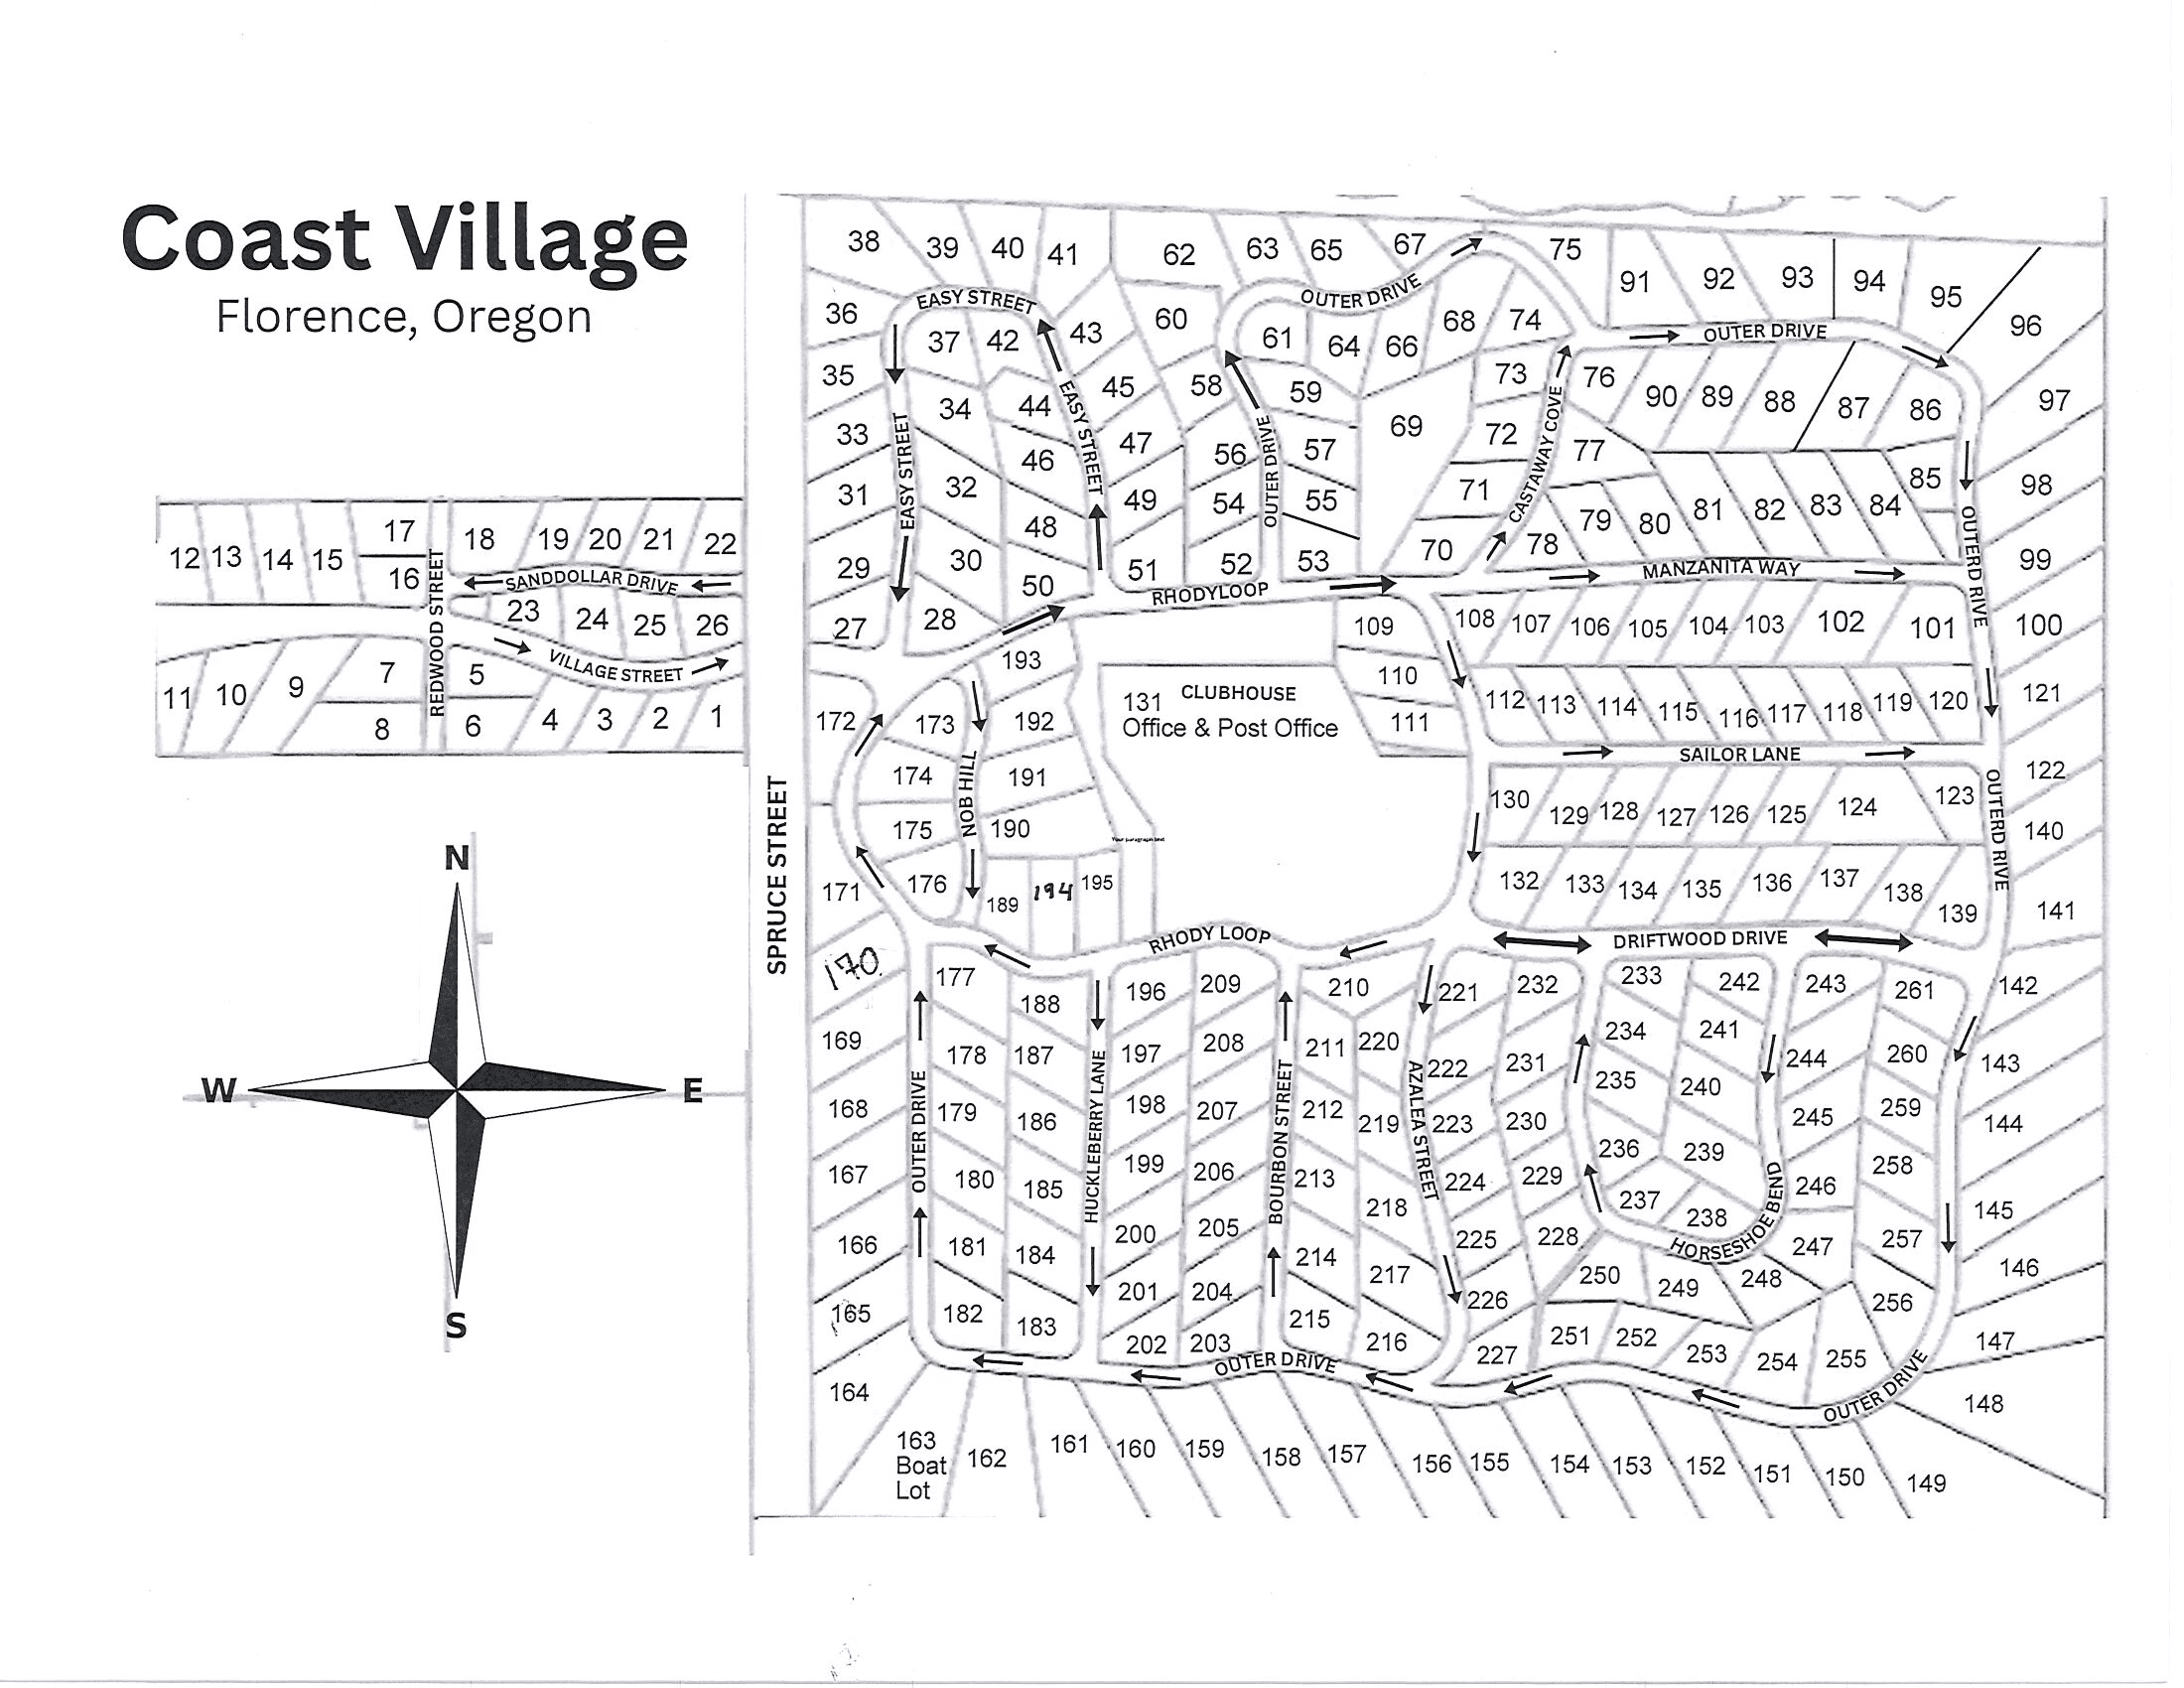 Coast Village
Florence, Oregon
38 39 40 41 62 63 65 67 75 91 92 93 94 95 96
EASY STREET
OUTER DRIVE
OUTER DRIVE
36 37 42 43 60 61 64 66 68 74
35 34 44 45 58 59 73 76 90 89 88 87 86 97
EASY STREET
EASY STREET
OUTER DRIVE
CASTAWAY COVE
33 32 46 47 56 57 69 72 77
31 48 49 54 55 71 79 80 81 82 83 84 85 98
29 30 50 51 52 53 70 78 99
MANZANITA WAY
OUTERD RIVE
RHODYLOOP
27 28 109 108 107 106 105 104 103 102 101 100
17 18 19 20 21 22
12 13 14 15 16
SANDDOLLAR DRIVE
REDWOOD STREET
23 24 25 26
VILLAGE STREET
11 10 9 7 5
8 6 4 3 2 1
193 110
172 173 192 111
131 CLUBHOUSE
Office & Post Office
112 113 114 115 116 117 118 119 120 121
SAILOR LANE
174 191
NOB HILL
SPRUCE STREET
175 190
Your paragraph text
130 129 128 127 126 125 124 123 122
OUTERD RIVE
140
171 176 189 194 195
132 133 134 135 136 137 138 139 141
RHODY LOOP
DRIFTWOOD DRIVE
N
W E
S
170 177 188 196 209 210 221 232 233 242 243 261 142
169 178 187 197 208 211 220 222 231 234 241 244 260 143
OUTER DRIVE
HUCKLEBERRY LANE
BOURBON STREET
AZALEA STREET
168 179 186 198 207 212 219 223 230 235 240 245 259 144
167 180 185 199 206 213 218 224 229 236 239 246 258 145
237 238
HORSESHOE BEND
166 181 184 200 205 214 217 225 228 247 257 146
250 249 248
165 182 183 201 204 215 226 256
202 203 216 227 251 252 253 254 255 147
OUTER DRIVE
OUTER DRIVE
164 148
163
Boat
Lot
162 161 160 159 158 157 156 155 154 153 152 151 150 149